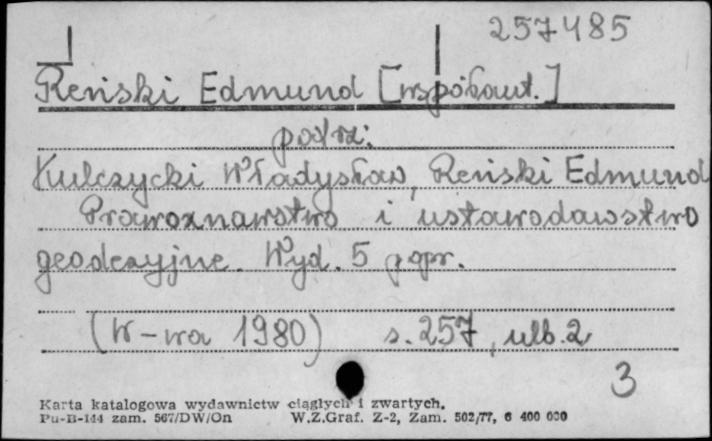 257485
Reński Edmund [współaut.]
patrz:
Kulczycki Władysław, Reński Edmund
Prawoznawstwo i ustawodawstwo
geodezyjne. Wyd. 5 popr.
(W-wa 1980) s. 257, ulb. 2
3
Karta katalogowa wydawnictw ciągłych i zwartych.
Pu-B-144 zam. 567/DW/On W.Z.Graf. Z-2, Zam. 502/77, 6 400 000